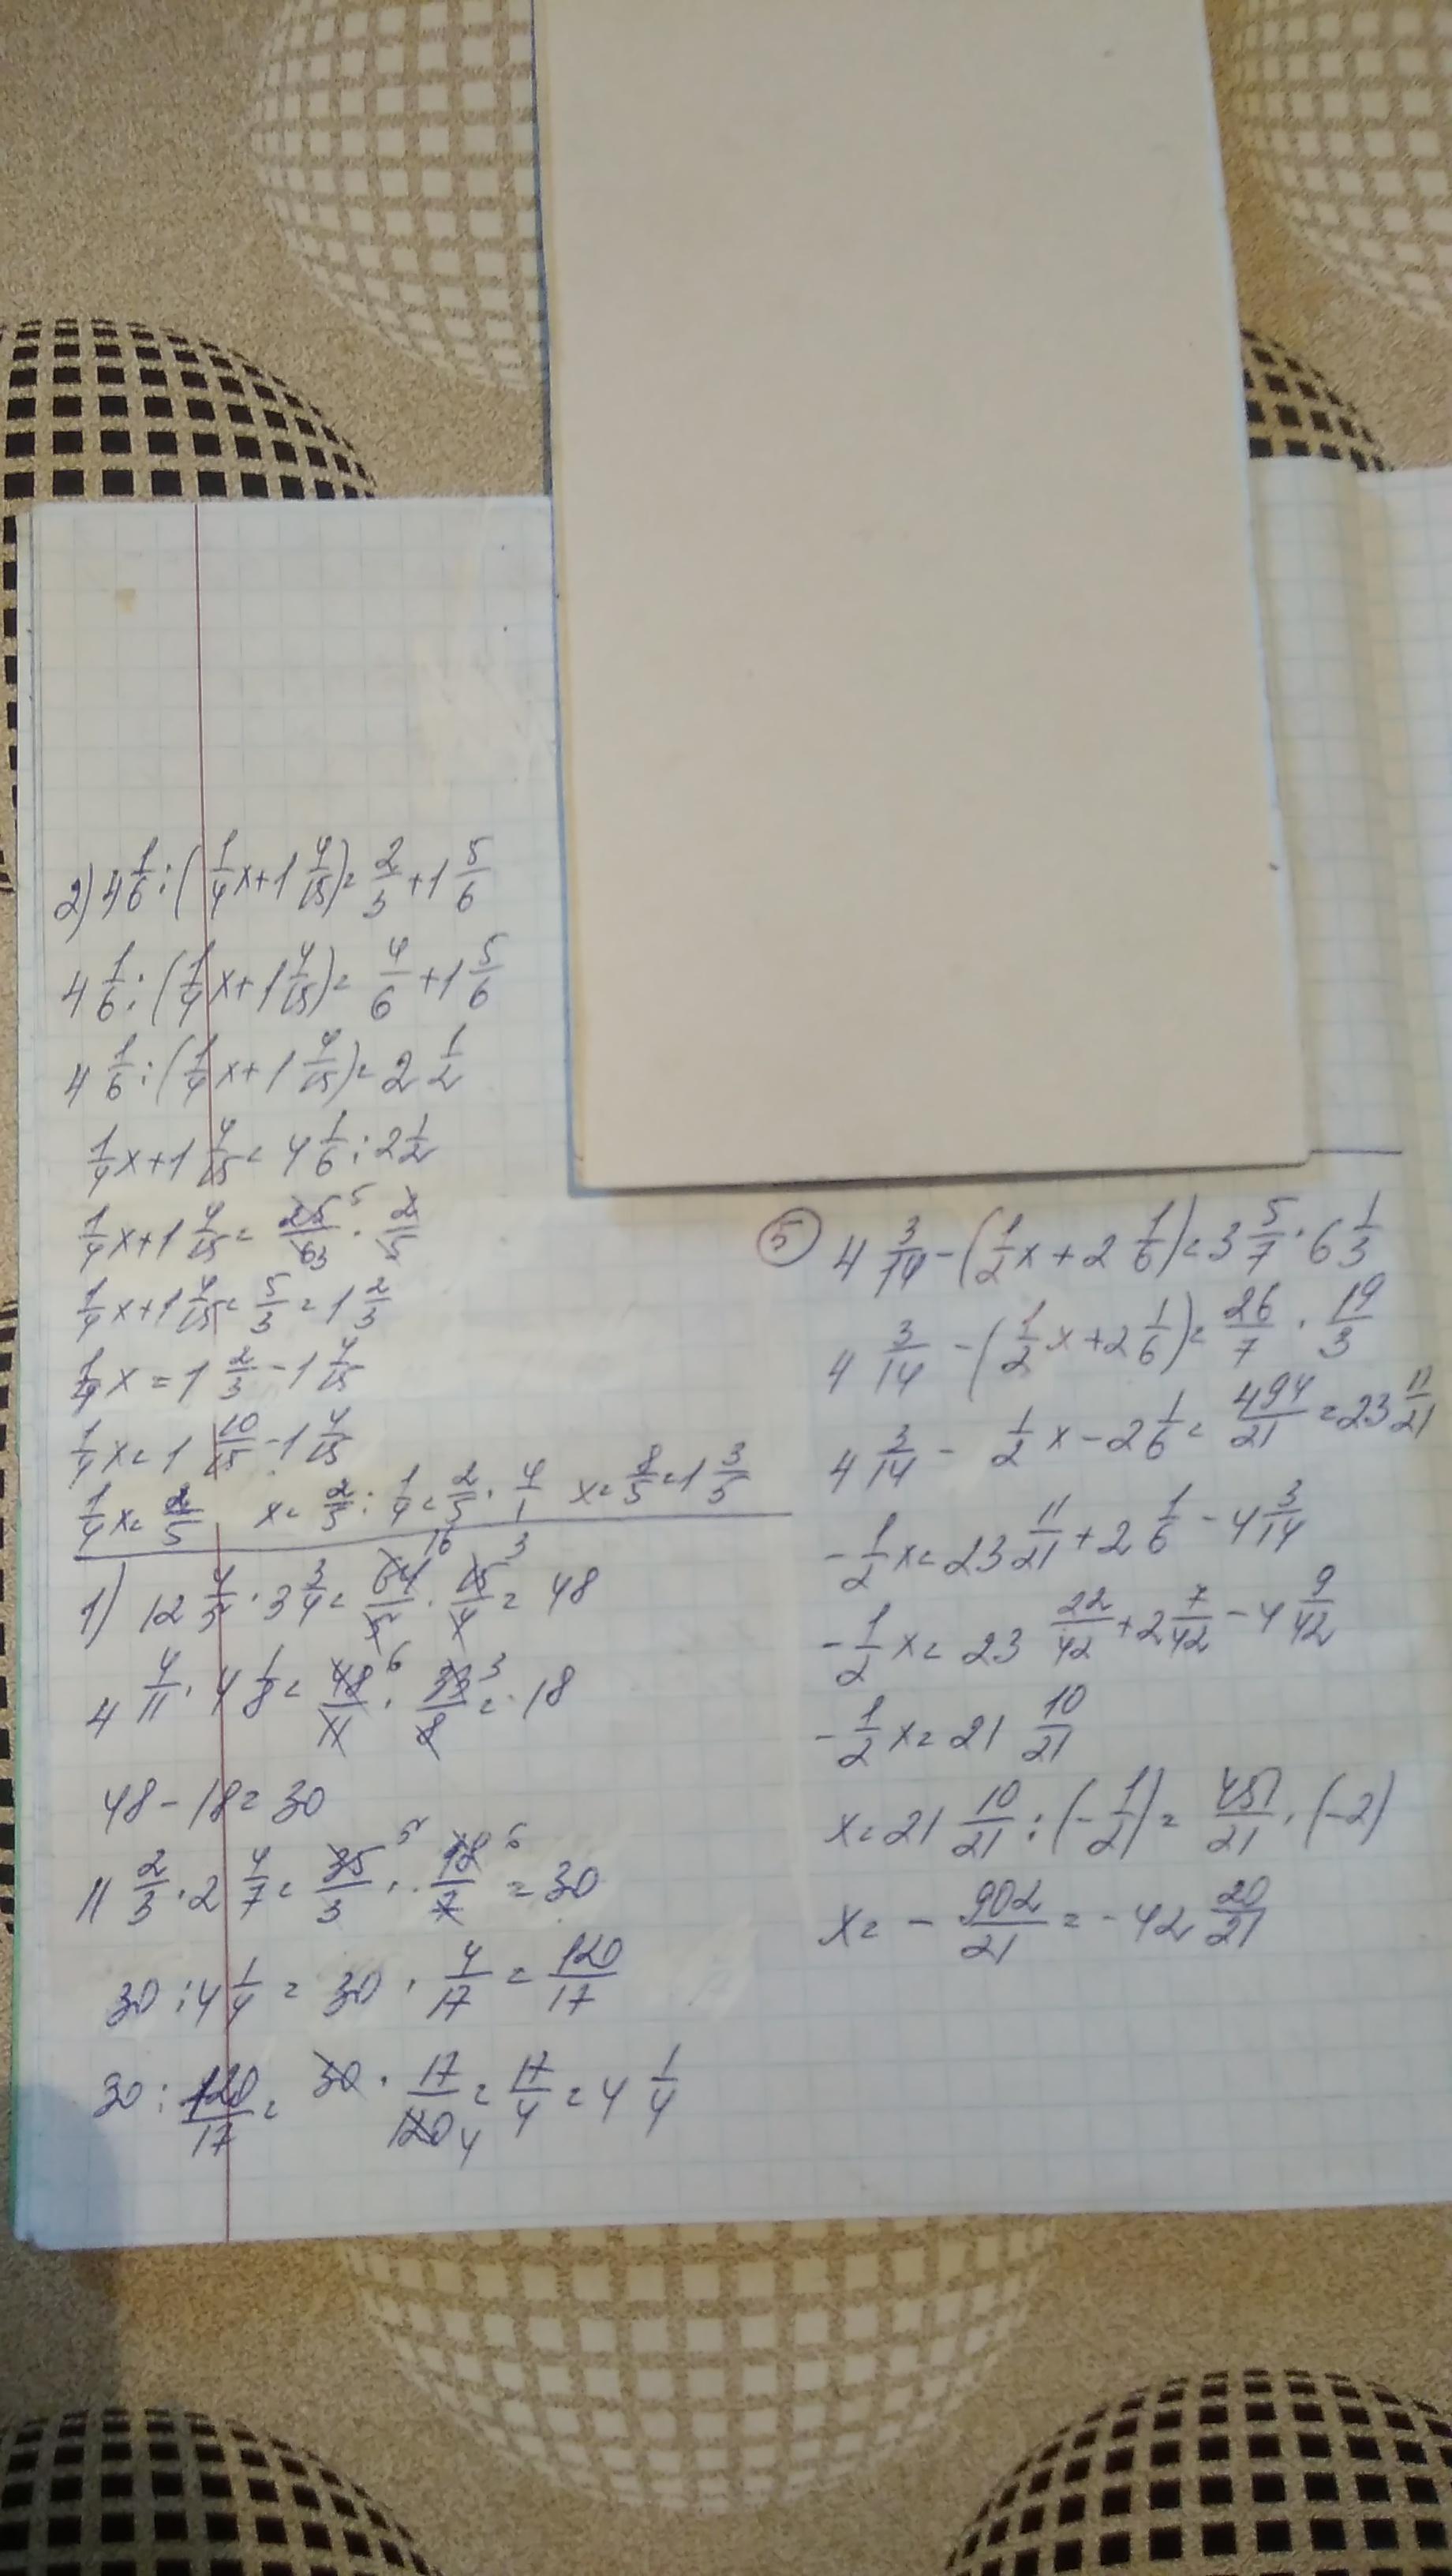 2) 4 1/6 : (1/4 x + 1 4/15) = 2/3 + 1 5/6
4 1/6 : (1/4 x + 1 4/15) = 4/6 + 1 5/6
4 1/6 : (1/4 x + 1 4/15) = 2 1/2
1/4 x + 1 4/15 = 4 1/6 : 2 1/2
1/4 x + 1 4/15 = 25/6 5 3 · 2/5
1/4 x + 1 4/15 = 5/3 = 1 2/3
1/4 x = 1 2/3 - 1 4/15
1/4 x = 1 10/15 - 1 4/15
1/4 x = 2/5 x = 2/5 : 1/4 = 2/5 · 4/1 x = 8/5 = 1 3/5
1) 12 4/5 · 3 3/4 = 64/5 16 · 15/4 3 = 48
4 4/11 · 4 1/8 = 48/11 6 · 33/8 3 = 18
48 - 18 = 30
11 2/3 · 2 4/7 = 35/3 5 · 18/7 6 = 30
30 : 4 1/4 = 30 · 4/17 = 120/17
30 : 120/17 = 30 · 17/120 4 = 17/4 = 4 1/4
5 4 3/14 - (1/2 x + 2 1/6) = 3 5/7 · 6 1/3
4 3/14 - (1/2 x + 2 1/6) = 26/7 · 19/3
4 3/14 - 1/2 x - 2 1/6 = 494/21 = 23 11/21
- 1/2 x = 23 11/21 + 2 1/6 - 4 3/14
- 1/2 x = 23 22/42 + 2 7/42 - 4 9/42
- 1/2 x = 21 10/21
x = 21 10/21 : (- 1/2) = 451/21 · (-2)
x = - 902/21 = - 42 20/21